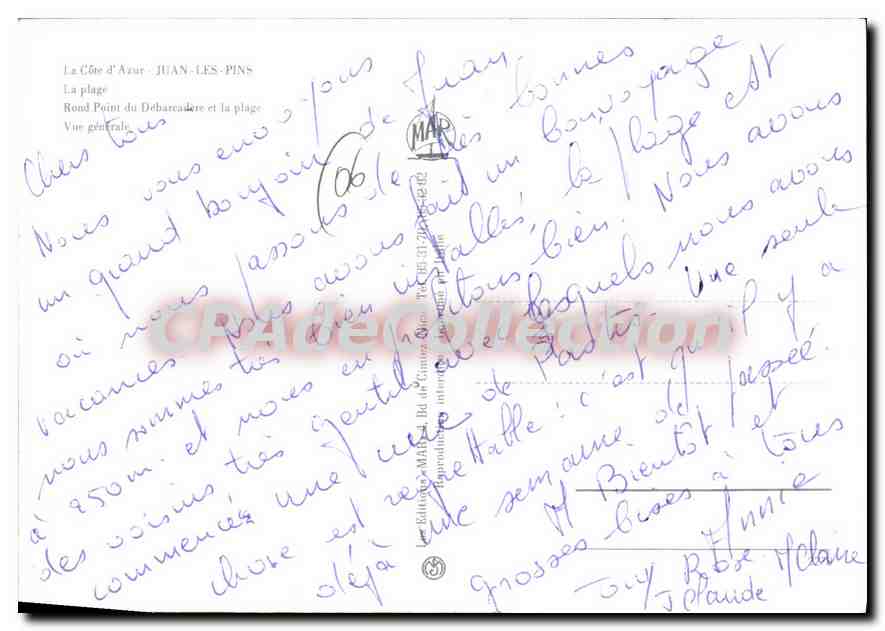 La Côte d'Azur - JUAN-LES-PINS
La plage
Rond Point du Débarcadère et la plage
Vue générale
MAR
06
Chers tous
Nous vous envoyons
un grand bonjour de Juan
où nous passons de très bonnes
vacances. Nous avons fait un bon voyage
nous sommes très bien installés, la plage est
à 250m. et nous en profitons bien. Nous avons
des voisins très gentils avec lesquels nous avons
commencés une cure de Pastis. Une seule
chose est regrettable : c'est qu'il y a
déjà une semaine de passée.
A Bientôt et
grosses bises à tous
Annie
Tony Rose M Claire
J Claude
Les Editions "MAR", Bd de Cimiez, Nice. Tél.
Reproduction interdite. Imprimé en Italie
CPAdeCollection